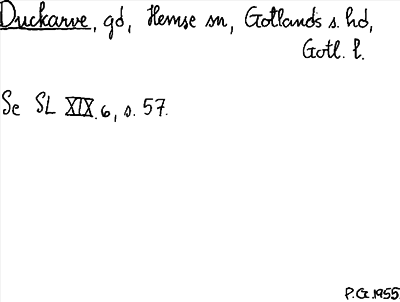 Duckarve, gd, Hemse sn, Gotlands s. hd,
Gotl. l.
Se SL XIX.6, s. 57.
P.G. 1955